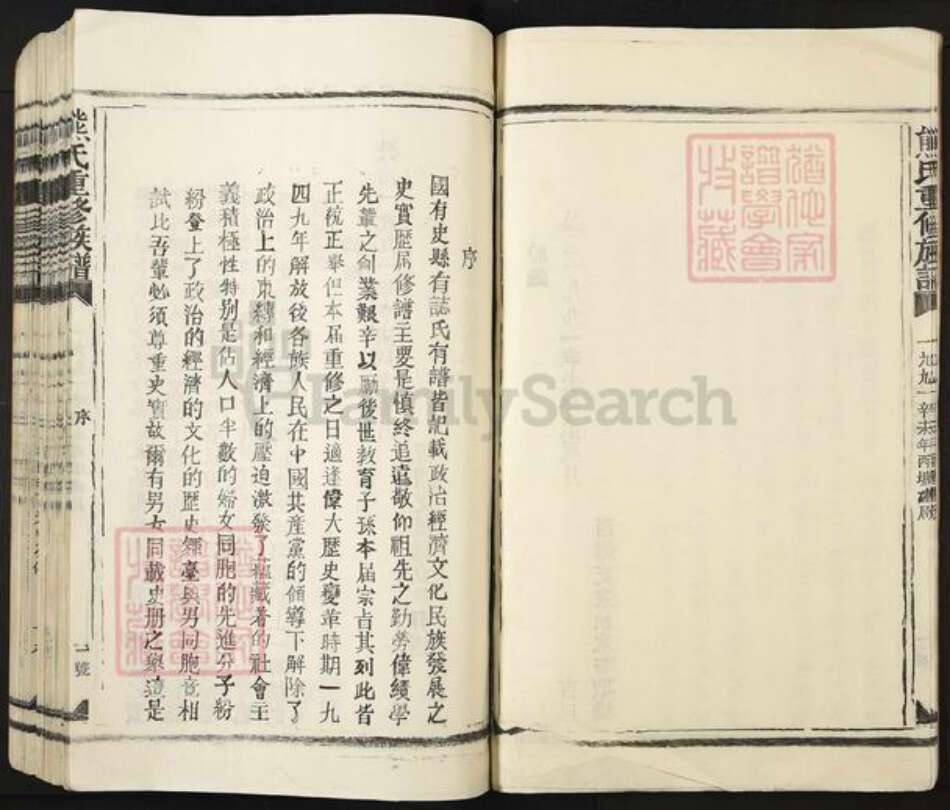 熊氏重修族譜
一九九一辛未年西
序
國有史縣有誌氏有譜皆記載政治經濟文化民族發展之
史實歷屆修譜主要是慎終追遠敬仰祖先之勤勞偉績學
先輩之創業艱辛以勵後世教育子孫本屆宗占其列此皆
正統正舉但本屆重修之日適逢偉大歷史變革時期一九
四九年解放後各族人民在中國共產黨的領導下解除了
政治上的束縛和經濟上的壓迫激發了蘊藏著的社會主
義積極性特別是佔人口半數的婦女同胞的先進分子紛
紛登上了政治的經濟的文化的歷史舞臺與男同胞竞相
試比吾輩必須尊重史實故爾有男女同載史册之舉這是
熊氏重修族譜
序
一號
譜學會
收藏
FamilySearch